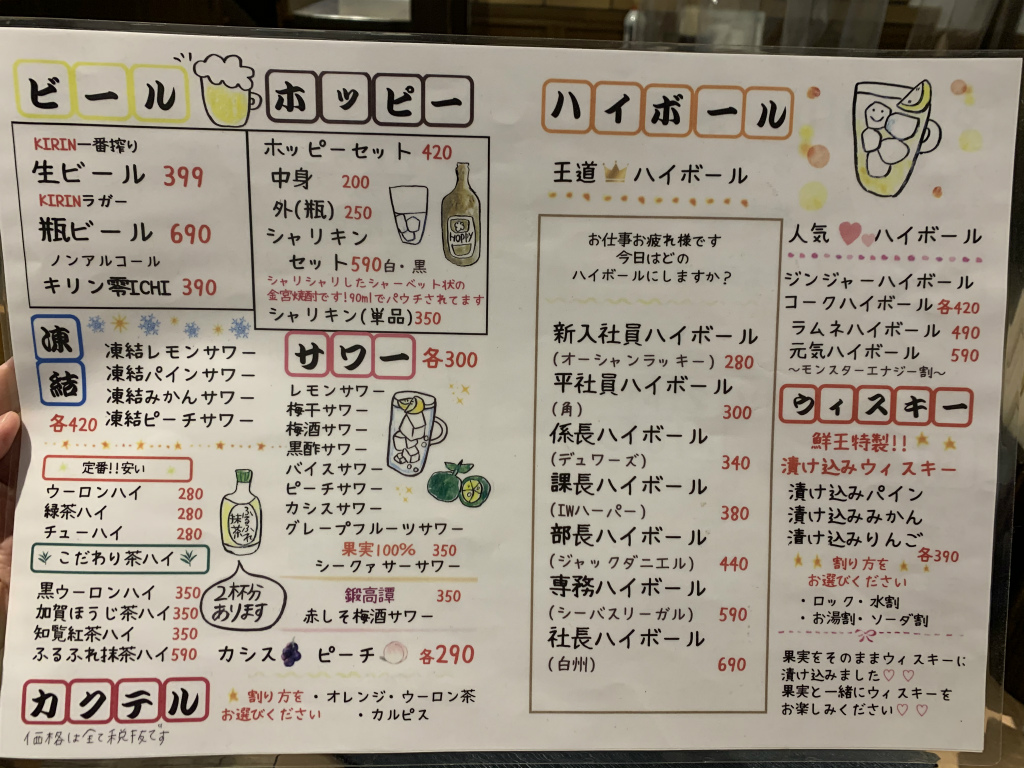 ビール
KIRIN一番搾り
生ビール 399
KIRINラガー
瓶ビール 690
ノンアルコール
キリン零ICHI 390
ホッピー
ホッピーセット 420
中身 200
外(瓶) 250
シャリキン
セット590 白・黒
シャリシャリしたシャーベット状の
金宮焼酎です!90mlでパウチされてます
シャリキン(単品)350
HOPPY
凍結
各420
凍結レモンサワー
凍結パインサワー
凍結みかんサワー
凍結ピーチサワー
定番!!安い
ウーロンハイ 280
緑茶ハイ 280
チューハイ 280
こだわり茶ハイ
黒ウーロンハイ 350
加賀ほうじ茶ハイ 350
知覧紅茶ハイ 350
ふるふれ抹茶ハイ 590
ふるふれ
抹茶
2杯分
あります
サワー 各300
レモンサワー
梅干サワー
梅酒サワー
黒酢サワー
バイスサワー
ピーチサワー
カシスサワー
グレープフルーツサワー
果実100% 350
シークァサーサワー
鍛高譚 350
赤しそ梅酒サワー
カシス ピーチ 各290
カクテル
割り方を
お選びください
・オレンジ・ウーロン茶
・カルピス
価格は全て税抜です
ハイボール
王道 ハイボール
お仕事お疲れ様です
今日はどの
ハイボールにしますか?
新入社員ハイボール
(オーシャンラッキー) 280
平社員ハイボール
(角) 300
係長ハイボール
(デュワーズ) 340
課長ハイボール
(IWハーパー) 380
部長ハイボール
(ジャックダニエル) 440
専務ハイボール
(シーバスリーガル) 590
社長ハイボール
(白州) 690
人気 ハイボール
ジンジャーハイボール
コークハイボール 各420
ラムネハイボール 490
元気ハイボール 590
〜モンスターエナジー割〜
ウィスキー
鮮王特製!!
漬け込みウィスキー
漬け込みパイン
漬け込みみかん
漬け込みりんご
各390
割り方を
お選びください
・ロック・水割
・お湯割・ソーダ割
果実をそのままウィスキーに
漬け込みました♡♡
果実と一緒にウィスキーを
お楽しみください♡♡